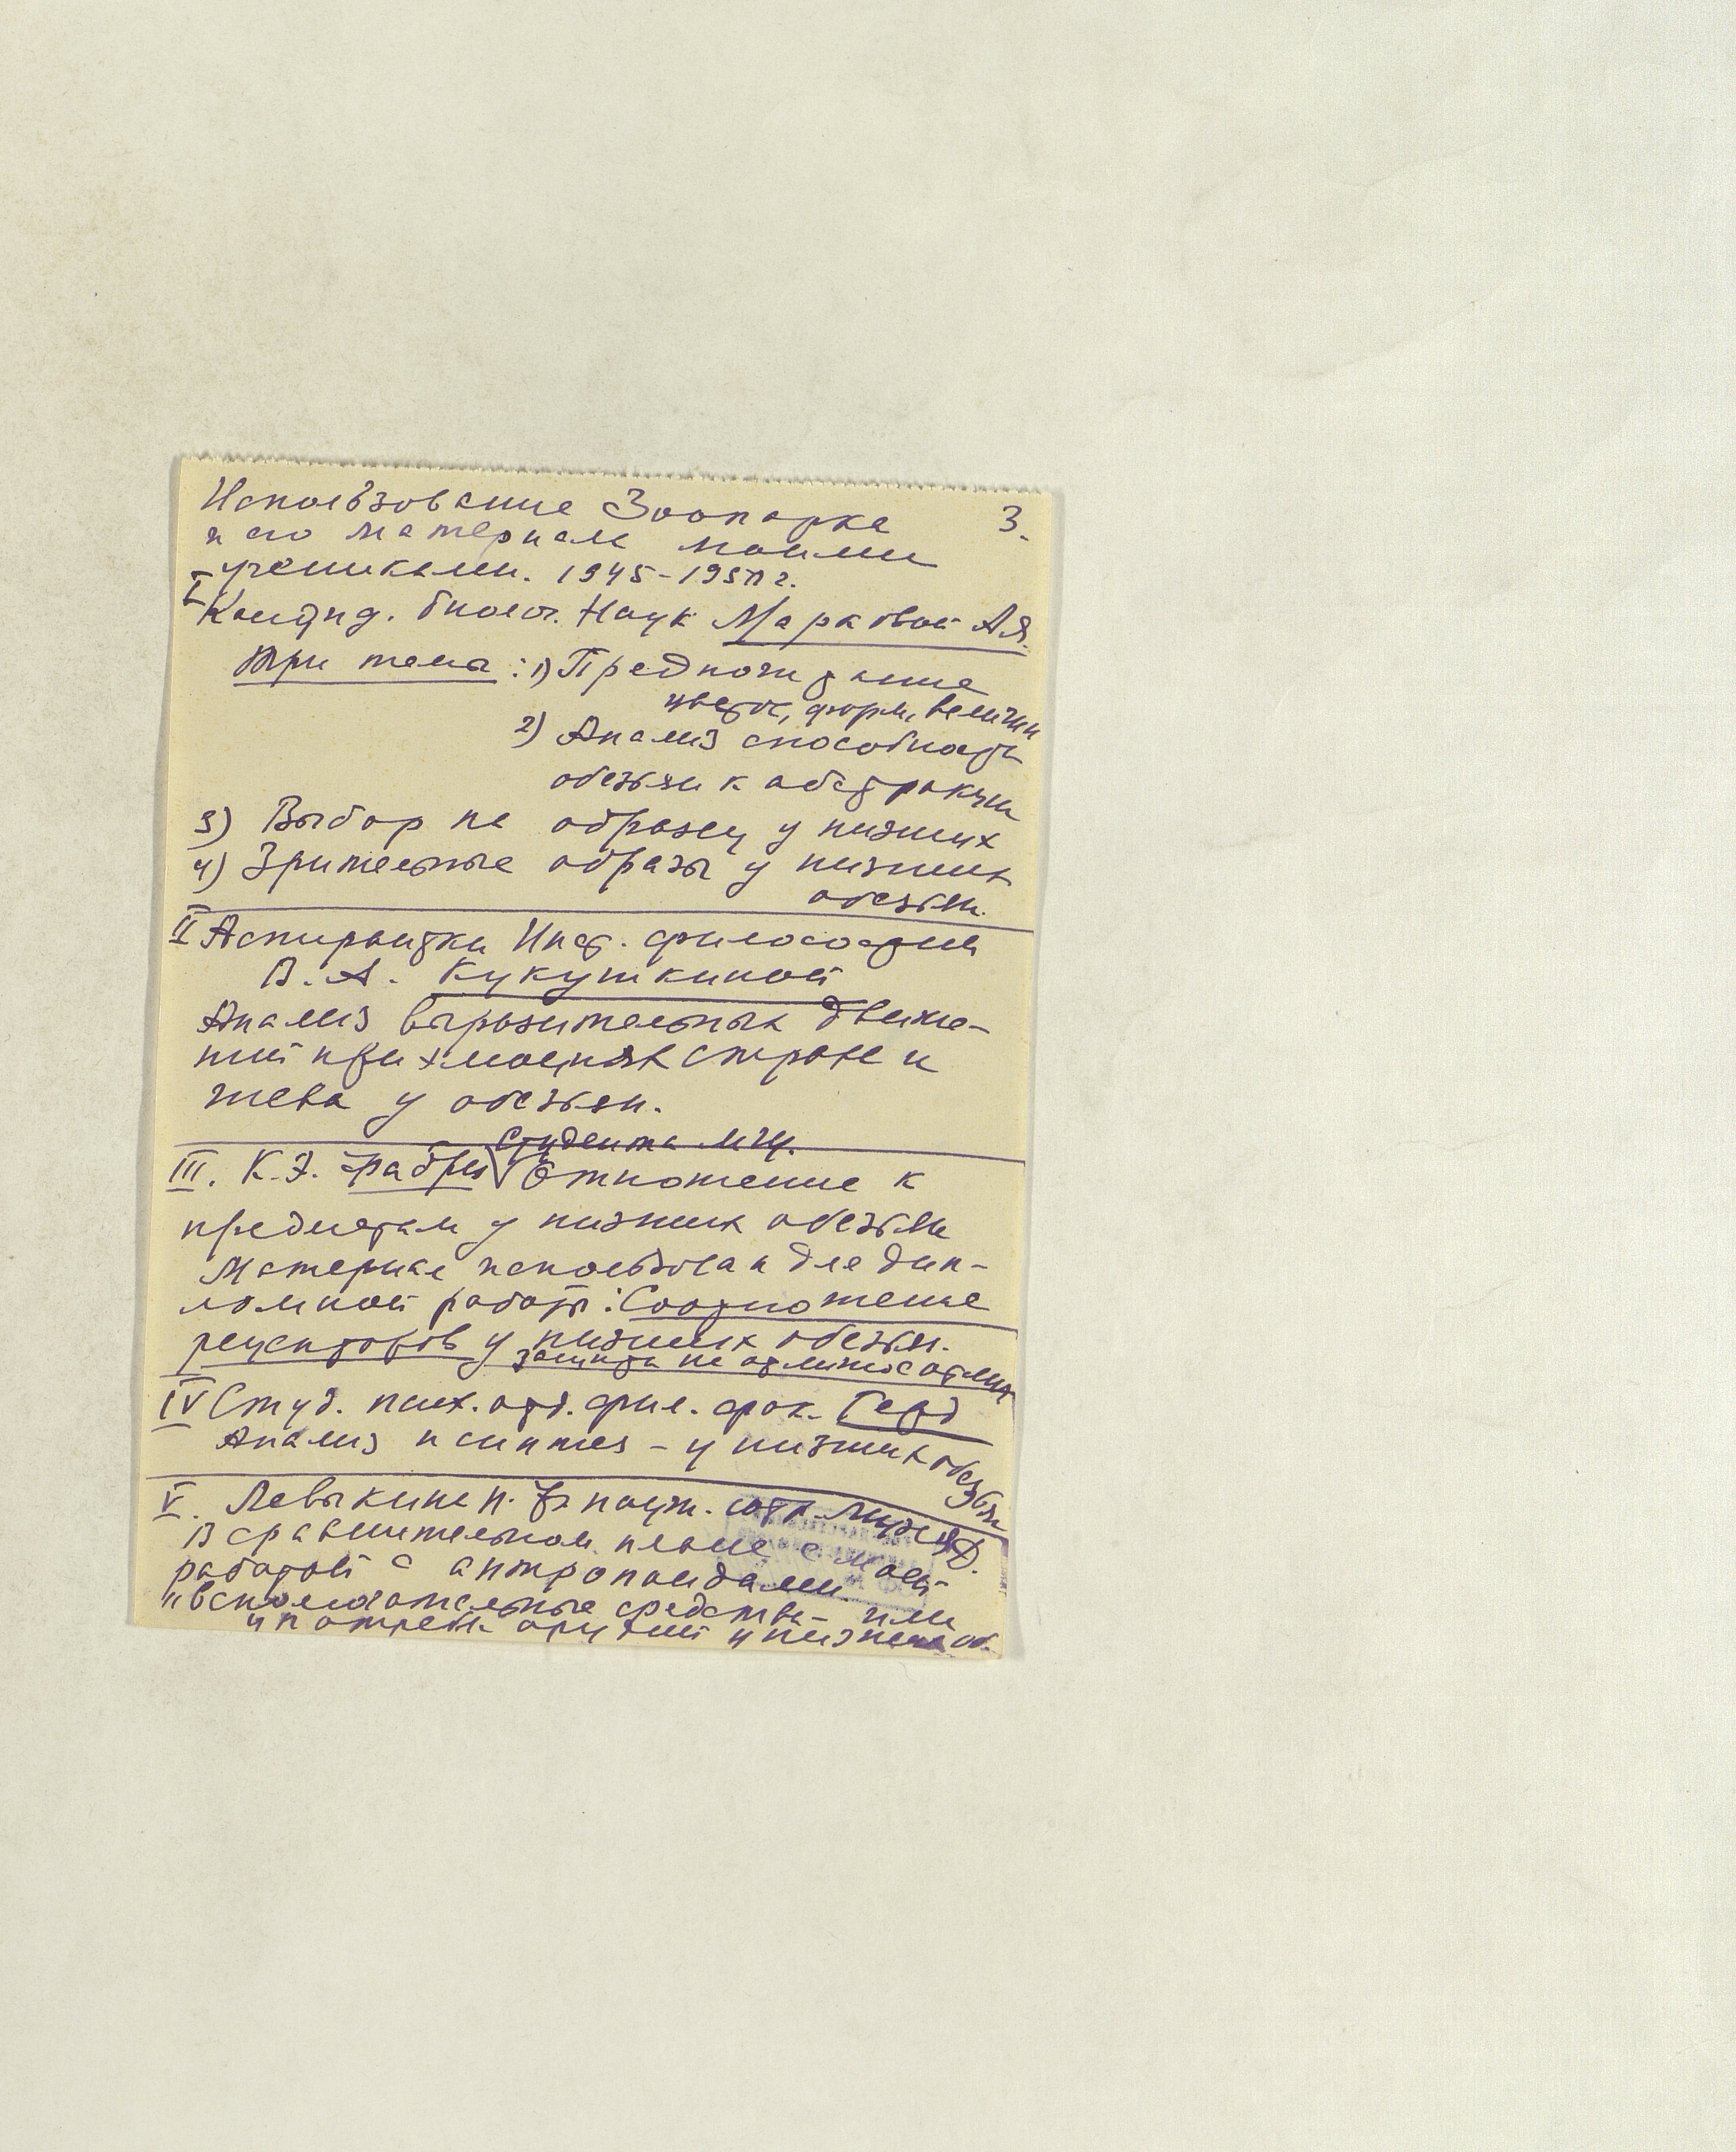 Использование Зоопарка 3.
и его материала моими
учениками. 1945-1950 г.
I Кандид. биолог. Наук Марковой А.Я.
Три темы: 1) Предпочитание
цветов, форм, величин
2) Анализ способности
обезьян к абстракции
3) Выбор на образец у низших
4) Зрительные образы у низших
обезьян.
II Аспирантки Инст. философии
В. А. Кукушкиной
Анализ выразительных движе-
ний при эмоциях страха и
гнева у обезьян.
студента МГУ.
III. К.Э. Фабри Отношение к
предметам у низших обезьян
Материал использован для дип-
ломной работы: Соотношение
рецепторов у низших обезьян.
защита на отлично
IV Студ. псих. отд. фил. фак. Герд
Анализ и синтез - у низших обезьян
V. Левыкина н. науч. сотр.
В сравнительном плане с моей
работой с антропоидами
"вспомогательные средства - или
употребл. орудий у низших об.